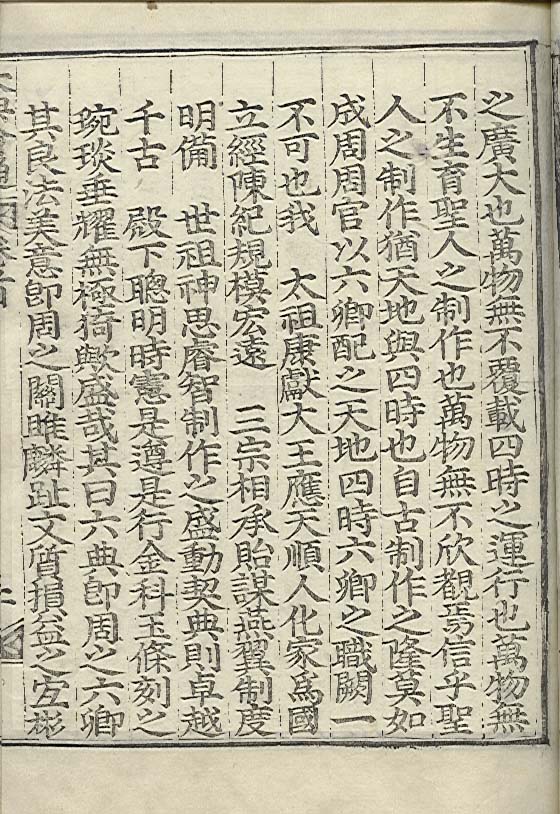 之廣大也萬物無不覆載四時之運行也萬物無
不生育聖人之制作也萬物無不欣觀焉信乎聖
人之制作猶天地與四時也自古制作之隆莫如
成周周官以六卿配之天地四時六卿之職闕一
不可也我　太祖康獻大王應天順人化家爲國
立經陳紀規模宏遠　三宗相承貽謀燕翼制度
明備　世祖神思睿智制作之盛動契典則卓越
千古　殿下聰明時憲是遵是行金科玉條刻之
琬琰垂耀無極猗歟盛哉其曰六典卽周之六卿
其良法美意卽周之關雎麟趾文質損益之宜彬